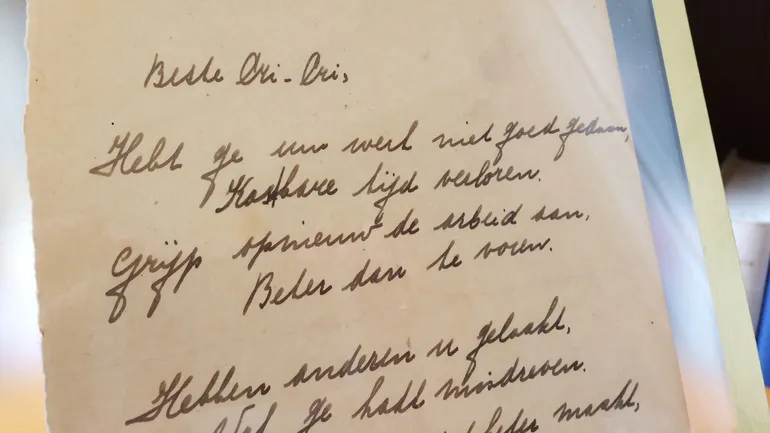 Beste Cri-Cri,
Hebt ge uw werk niet goed gedaan,
Kostbare tijd verloren.
Grijp opnieuw de arbeid aan,
Beter dan te voren.
Hebben anderen u gelaakt,
Wat ge hadt misdreven.
beter maakt,